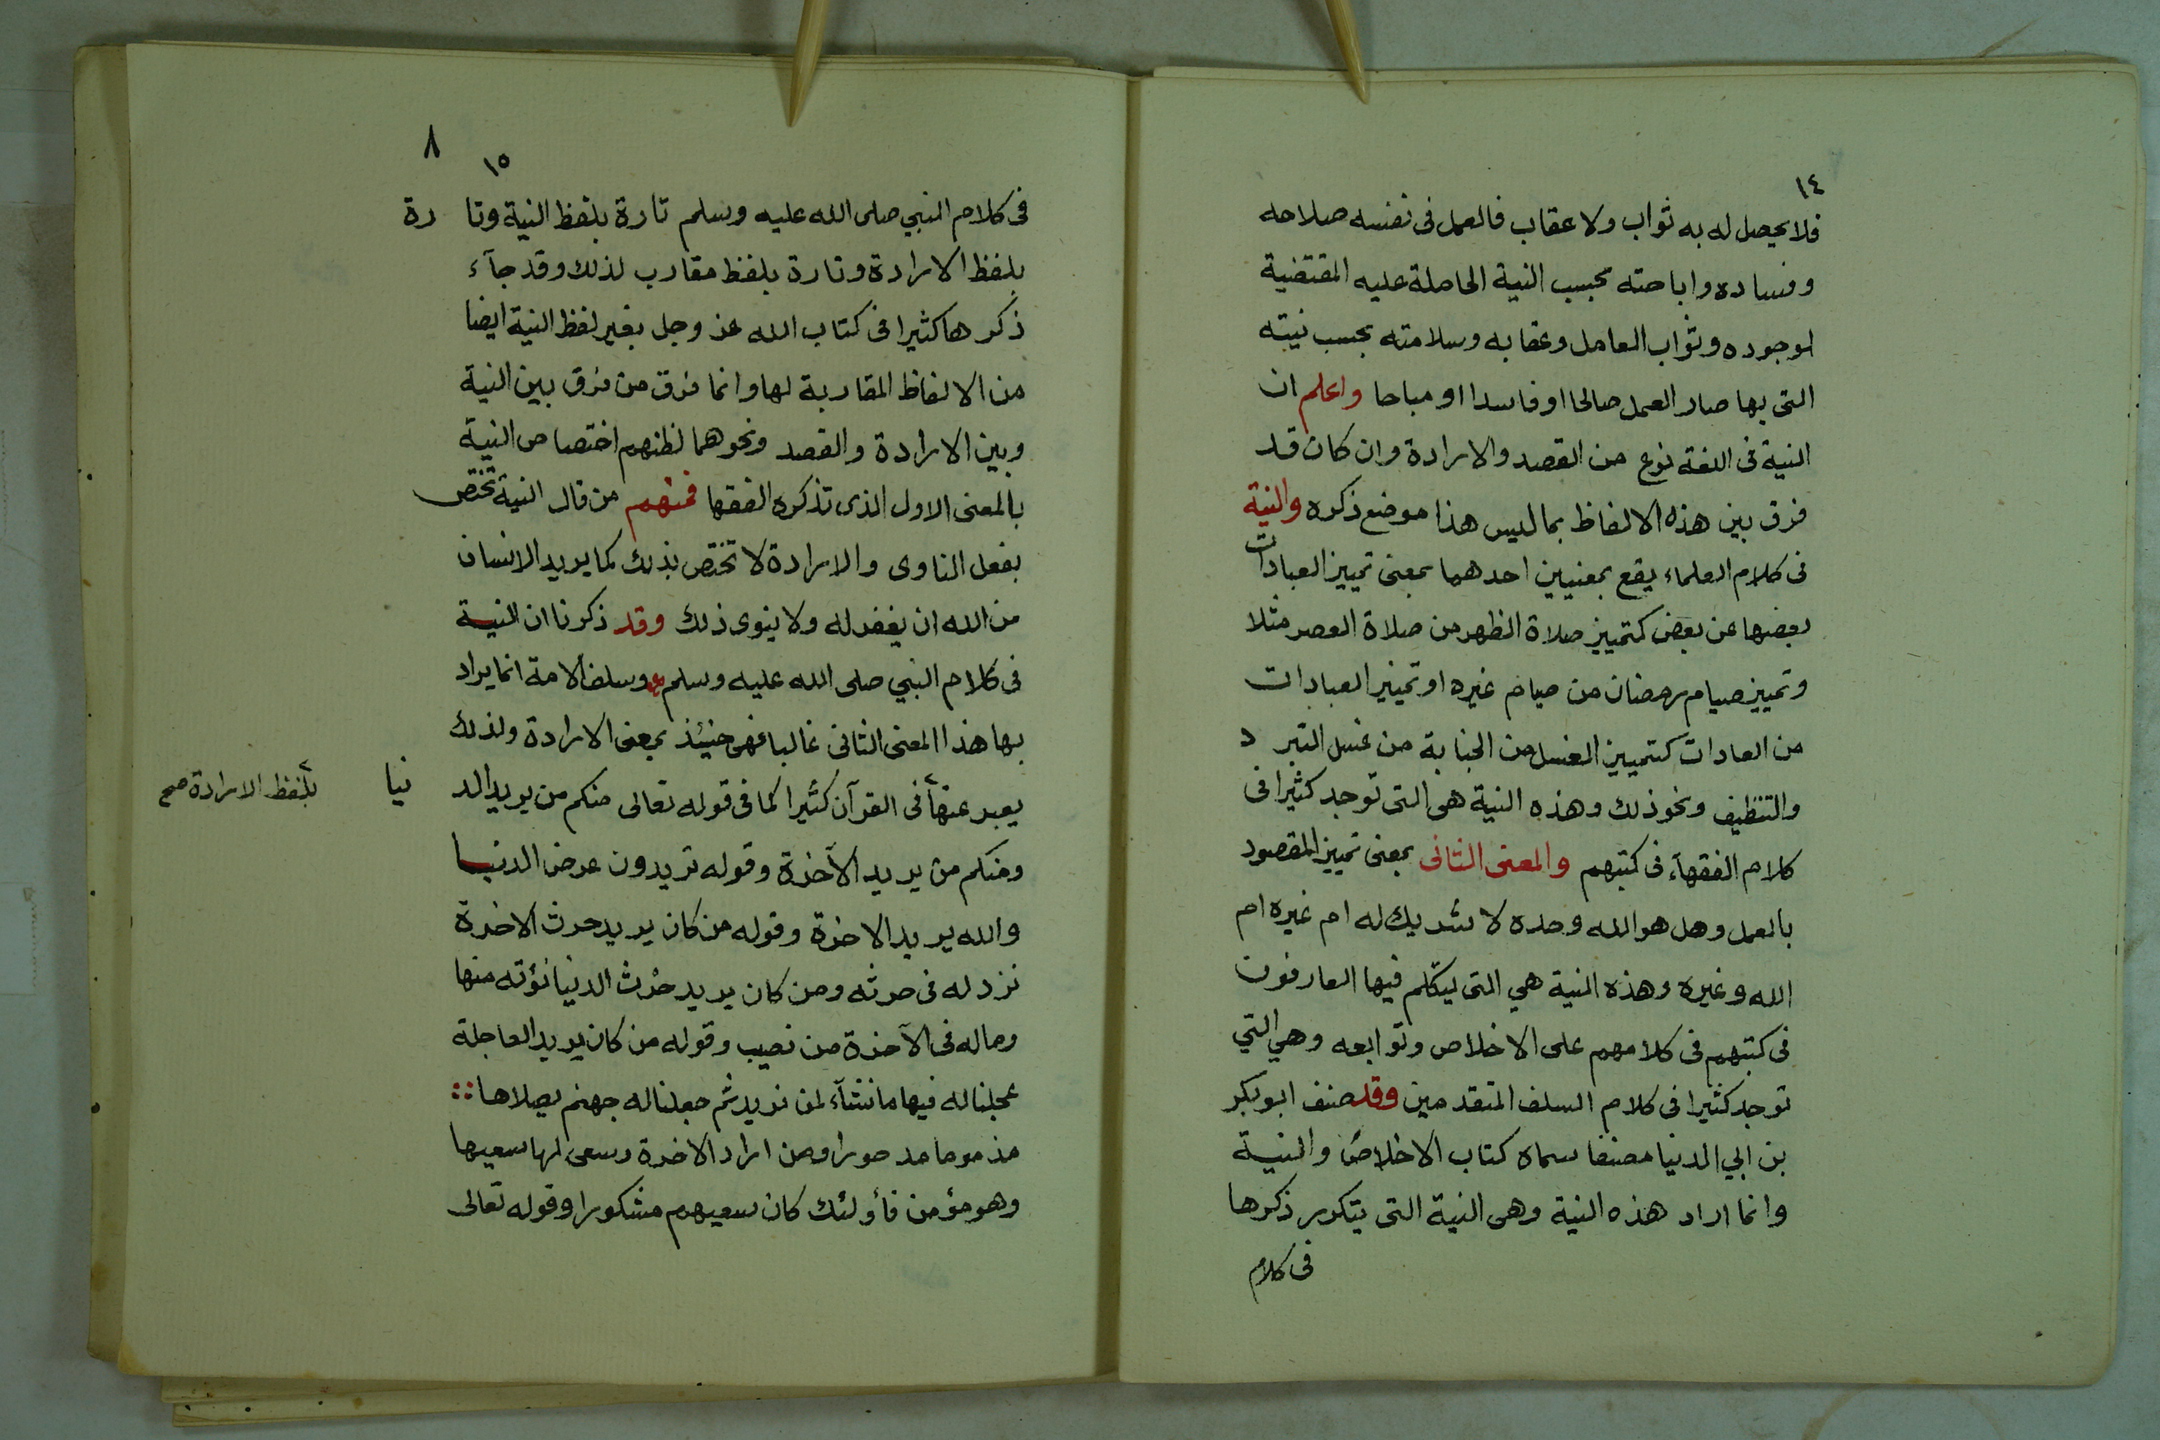 ١٤
فلا يحصل له به ثواب ولا عقاب فالعمل فى نفسه صلاحه
وفساده واباحته بحسب النية الحاملة عليه المقتضية
لوجوده وثواب العامل وعقابه وسلامته بحسب نيته
التى بها صار العمل صالحا او فاسدا او مباحا واعلم ان
النية فى اللغة نوع من القصد والارادة وان كان قد
فرق بين هذه الالفاظ بما ليس هذا موضع ذكره والنية
فى كلام العلماء يقع بمعنيين احدهما بمعنى تمييز العبادات
بعضها عن بعض كتمييز صلاة الظهر من صلاة العصر مثلا
وتمييز صيام رمضان من صيام غيره او تمييز العبادات
من العادات كتمييز الغسل من الجنابة من غسل التبر د
والتنظيف ونحو ذلك وهذه النية هى التى توجد كثيرا فى
كلام الفقهآء فى كتبهم والمعنى الثانى بمعنى تمييز المقصود
بالعمل وهل هو الله وحده لا شريك له ام غيره ام
الله وغيره وهذه النية هي التى يتكلم فيها العارفون
فى كتبهم فى كلامهم على الاخلاص وتوابعه وهي التي
توجد كثيرا فى كلام السلف المتقدمين وقد صنف ابو بكر
بن ابي الدنيا مصنفا سماه كتاب الاخلاص والنية
وانما اراد هذه النية وهى النية التى يتكرر ذكرها
فى كلام
٨
١٥
فى كلام النبي صلى الله عليه وسلم تارة بلفظ النية وتا رة
بلفظ الارادة وتارة بلفظ مقارب لذلك وقد جآء
ذكرها كثيرا فى كتاب الله عز وجل بغير لفظ النية ايضا
من الالفاظ المقاربة لها وانما فرق من فرق بين النية
وبين الارادة والقصد ونحوهما لظنهم اختصاص النية
بالمعنى الاول الذى تذكره الفقها فمنهم من قال النية تختص
بفعل الناوى والارادة لا تختص بذلك كما يريد الانسان
من الله ان يغفر له ولا ينوى ذلك وقد ذكرنا ان النية
فى كلام النبي صلى الله عليه وسلم وسلف الامة انما يراد
بها هذا المعنى الثانى غالبا فهى حينئذ بمعنى الارادة ولذلك
يعبر عنها فى القرآن كثيرا كما فى قوله تعالى منكم من يريد الد نيا
بلفظ الارادة صح
ومنكم من يريد الآخرة وقوله تريدون عرض الدنيا
والله يريد الاخرة وقوله من كان يريد حرث الاخرة
نزد له فى حرثه ومن كان يريد حرث الدنيا نؤته منها
وماله فى الآخرة من نصيب وقوله من كان يريد العاجلة
عجلنا له فيها ما نشآء لمن نريد ثم جعلنا له جهنم يصلاها
مذموما مدحورا ومن اراد الاخرة وسعى لها سعيها
وهو مؤمن فأولئك كان سعيهم مشكورا وقوله تعالى